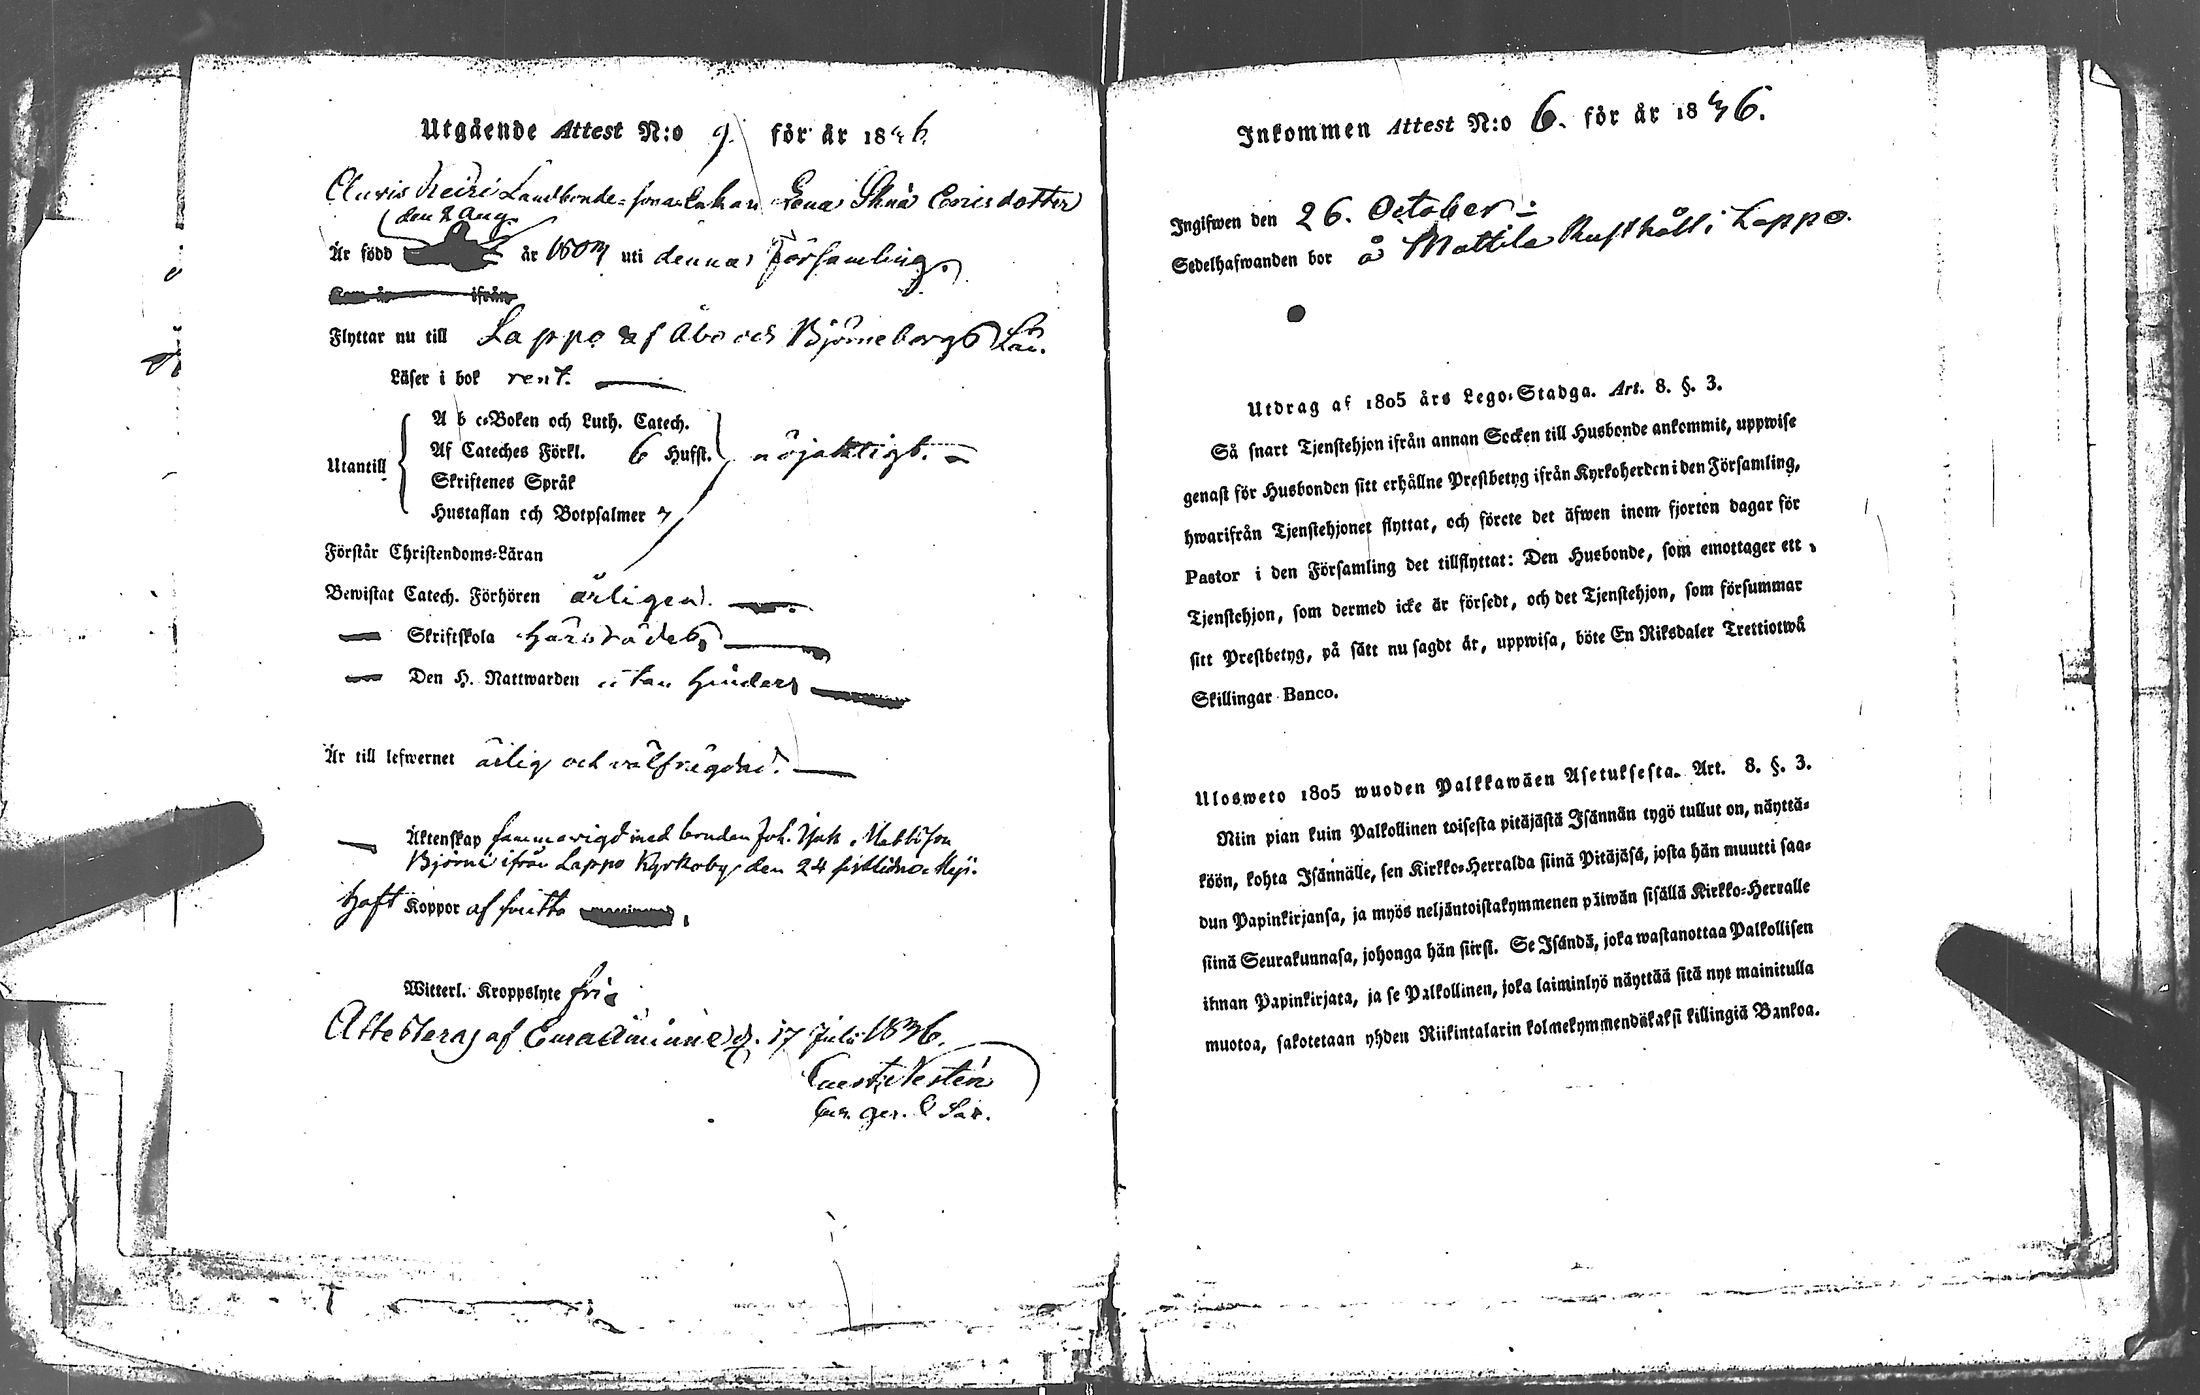 Utgående Attest N:o 9. för år 1836.
Landbonde-sona Enkan Lena Stina Ericsdotter
den 8 Aug.
Är född år 1803 uti denna Församling.
Kom år ifrån
Flyttar nu till Lappo af Åbo och Björneborgs Län.
Läser i bok rent.
Utantill
A b c-Boken och Luth. Catech.
Af Cateches Förkl. 6 Hufst. nöjaktigt.
Skriftenes Språk
Hustaflan och Botpsalmer
Förstår Christendoms-Läran
Bewistat Catech. Förhören årligen.
Skriftskola
Den H. Nattwarden utan hinder
Är till lefwernet ärlig och välfrägdad.
Äktenskap sammanvigd med bonden Joh. Mattsson
Björni ifrån Lappo Kyrkoby den 24 sistledne Maji.
Haft Koppor
Witterl. Kroppslyte fri
Attesteras af d. 17 Juli 1836.
Inkommen Attest N:o 6. för år 1836.
Ingifwen den 26. October
Sedelhafwanden bor å Mattila Rusthåll i Lappo.
Utdrag af 1805 års Lego-Stadga. Art. 8. §. 3.
Så snart Tjenstehjon ifrån annan Socken till Husbonde ankommit, uppwise
genast för Husbonden sitt erhållne Prestbetyg ifrån Kyrkoherden i den Församling,
hwarifrån Tjenstehjonet flyttat, och förete det äfwen inom fjorton dagar för
Pastor i den Församling det tillflyttat: Den Husbonde, som emottager ett
Tjenstehjon, som dermed icke är försedt, och det Tjenstehjon, som försummar
sitt Prestbetyg, på sätt nu sagdt är, uppwisa, böte En Riksdaler Trettiotwå
Skillingar Banco.
Ulosweto 1805 wuoden Palkkawäen Asetuksesta. Art. 8. §. 3.
Niin pian kuin Palkollinen toisesta pitäjästä Isännän tygö tullut on, näyttä-
köön, kohta Isännälle, sen Kirkko-Herralda siinä Pitäjäsä, josta hän muutti saa-
dun Papinkirjansa, ja myös neljäntoistakymmenen päiwän sisällä Kirkko-Herralle
siinä Seurakunnasa, johonga hän siirsi. Se Isändä, joka wastanottaa Palkollisen
ihnan Papinkirjata, ja se Palkollinen, joka laiminlyö näyttää sitä nyt mainitulla
muotoa, sakotetaan yhden Riikintalarin kolmekymmendäkaksi killingiä Bankoa.